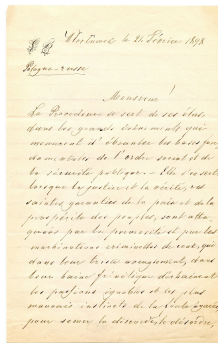 le 24 Février 1898
Pologne-russe
Monsieur!
La Providence se sert de ses élus,
dans les grands évènements qui
menacent d'ébranler les bases fon-
damentales de l'ordre social et de
la sécurité publique. - Elle s'en sert
lorsque la justice et la vérité, ces
saintes garanties de la paix et de la
prospérité des peuples, sont atta-
quées par la perversité et par les
machinations criminelles de ceux, qui
dans leur triste aveuglement, dans
leur haine fanatique déchaînent
les passions ignobles et les plus
mauvais instincts de la foule égarée,
pour semer la discorde, le désordre,